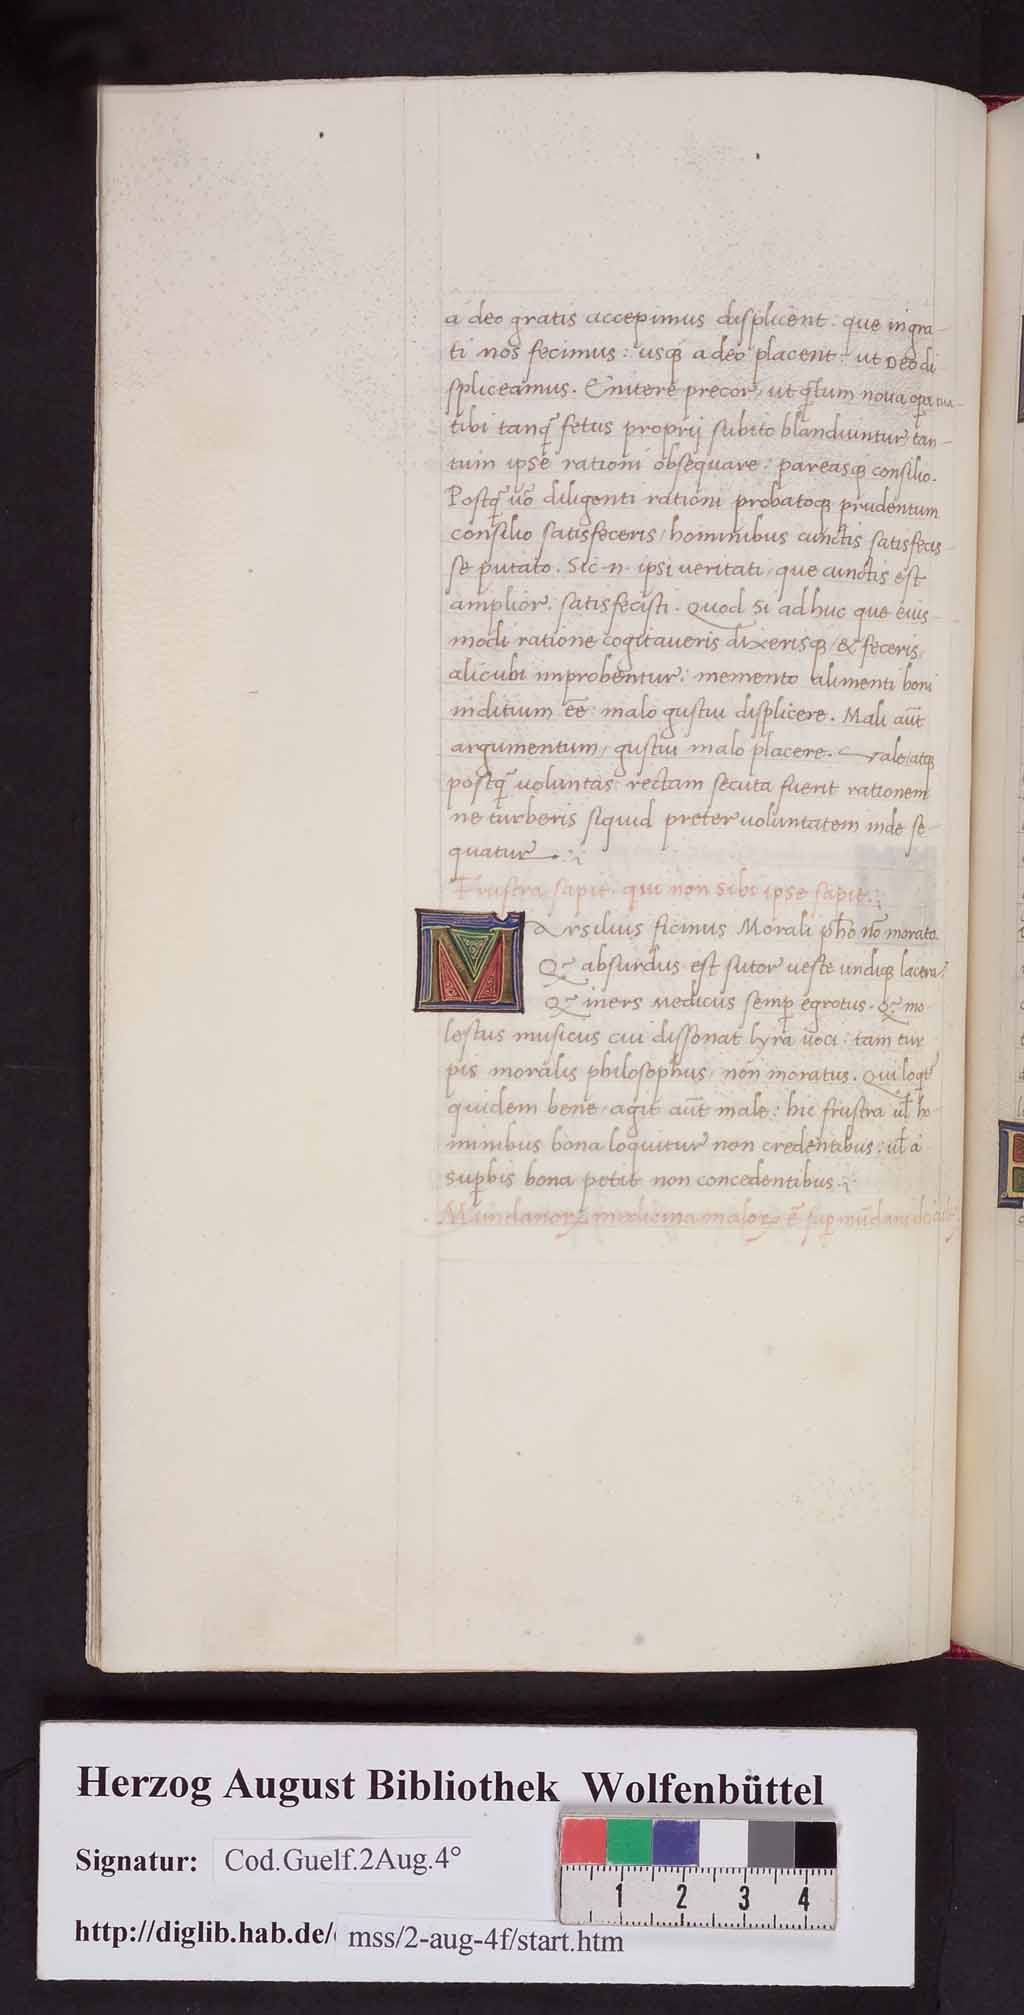 a deo gratis accepimus displicent: que ingra-
ti nos fecimus: usqꝫ adeo placent: ut Deo di
spliceamus. Enitere precor, ut q̃tum noua opera tua
tibi tanq̃ fetus proprij subito blandiuntur tan-
tum ipse rationi obsequare: pareasqꝫ consilio.
Postq̃ uõ diligenti rationi probatoqꝫ prudentum
consilio satisfeceris, hominibus cunctis satisfecis-
se putato. Sic .n. ipsi veritati, que cunctis est
amplior, satisfecisti. Quod Si adhuc que eius-
modi ratione cogitaveris dixerisqꝫ, & feceris,
alicubi improbentur: memento alimenti boni
inditium eẽ: malo gustui displicere. Mali aũt
argumentum, gustui malo placere. Vale, atqꝫ
postq̃ voluntas rectam secuta fuerit rationem
ne turberis siquid preter uoluntatem inde se-
quatur.
Frustra sapit, qui non sibi ipse sapit.
MArsilius ficinus Morali pħo nõ morato.
Q̃ absurdus est sutor ueste undiqꝫ lacera?
Q̃ iners Medicus semp̱ egrotus. Q̃ mo
lestus musicus cui dissonat lyra uoci: tam tur
pis moralis philosophus, non moratus. Qui loqt̃
quidem bene, agit aũt male: hic frustra ul̃ ho-
minibus bona loquitur non credentibus: ul̃ a
sup̱bis bona petit non concedentibus.
Mundanoꝝ medicina maloꝝ ẽ sup̱ mũdani dei
Herzog August Bibliothek Wolfenbüttel
Signatur: Cod.Guelf.2Aug.4°
http://diglib.hab.de/ mss/2-aug-4f/start.htm
1 2 3 4